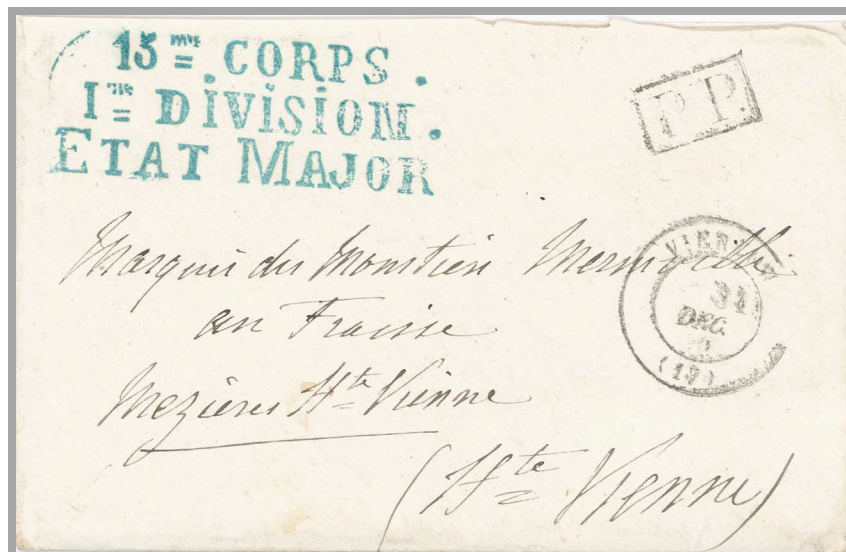 15me CORPS.
1re DIVISION.
ETAT MAJOR
P.P.
VIERZON
31
DEC.
(17)
Marquis du Moustier Merinville
au Fraisse
Mezières Hte Vienne
(Hte Vienne)